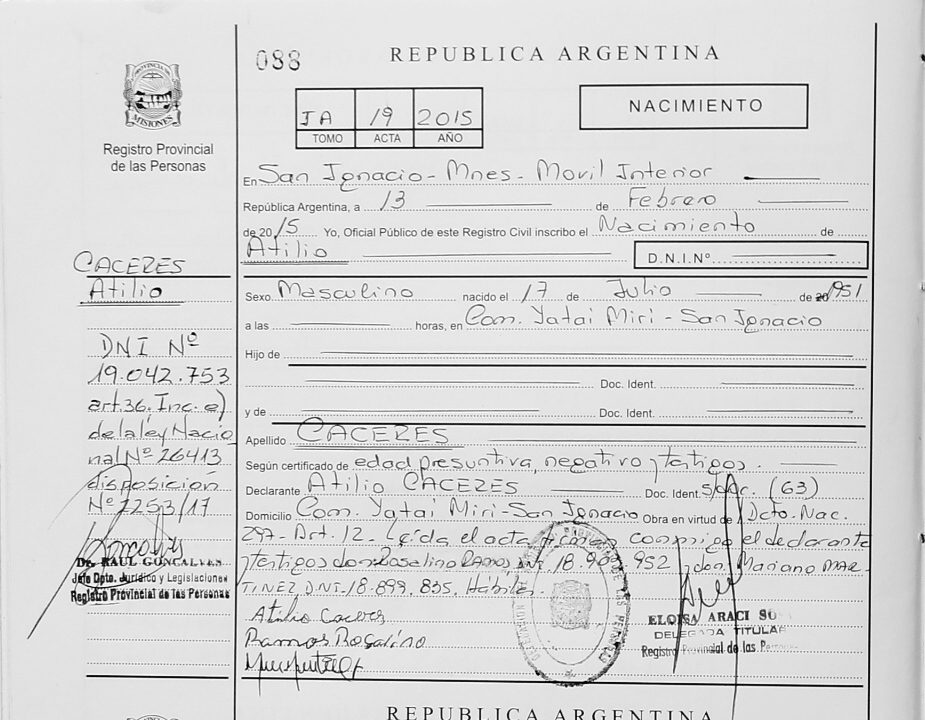 088
REPUBLICA ARGENTINA
PROVINCIA DE
MISIONES
Registro Provincial
de las Personas
IA 19 2015
TOMO ACTA AÑO
NACIMIENTO
En San Ignacio - Mnes - Movil Interior
República Argentina, a 13 de Febrero
de 2015 Yo, Oficial Público de este Registro Civil inscribo el Nacimiento de
Atilio D.N.I.Nº
CACERES
Atilio
DNI Nº
19.042.753
art.36. Inc. e)
de la ley Nacio
nal Nº 26413
disposición
Nº 2253/17
Dr. RAUL GONCALVES
Jefe Dpto. Jurídico y Legislaciones
Registro Provincial de las Personas
Sexo Masculino nacido el 17 de Julio de 20 1951
a las horas, en Com. Yatai Miri - San Ignacio
Hijo de
Doc. Ident.
y de Doc. Ident.
Apellido CACERES
Según certificado de edad presuntiva, negativo y testigos.
Declarante Atilio CACERES Doc. Ident. s/doc. (63)
Domicilio Com. Yatai Miri - San Ignacio Obra en virtud de Dcto. Nac.
297 - Art. 12 - Leída el acta firman conmigo el declarante
y testigos don Rosalino Ramos DNI. 18.909.952 y don. Mariano MAR-
TINEZ, DNI. 18.899.835. Hábiles.
Atilio Caceres
Ramos Rosalino
ELOISA ARACI
DELEGADA TITULAR
Registro Provincial de las Personas
REPUBLICA ARGENTINA